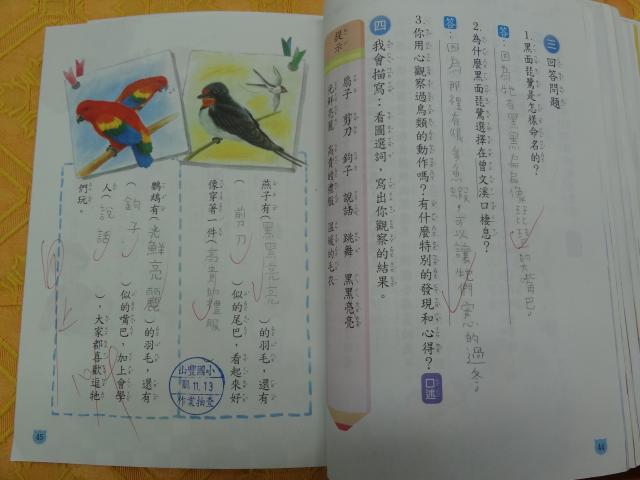 三 回答問題
1.黑面琵鷺是怎樣命名的？
答：因為牠有黑黑扁扁像琵琶的大嘴巴。
2.為什麼黑面琵鷺選擇在曾文溪口棲息？
答：因為那裡有很多魚蝦，可以讓牠們安心的過冬。
3.你用心觀察過鳥類的動作嗎？有什麼特別的發現和心得？ 口述
四 我會描寫：看圖選詞，寫出你觀察的結果。
提示
扇子 剪刀 鉤子 說話 跳舞 黑黑亮亮
光鮮亮麗 高貴的禮服 溫暖的毛衣
燕子有（黑黑亮亮）的羽毛，還有
（剪刀）似的尾巴，看起來好
像穿著一件（高貴的禮服）
鸚鵡有（光鮮亮麗）的羽毛，還有
（鉤子）似的嘴巴，加上會學
人（說話），大家都喜歡逗牠
們玩。
山豐國小
101.11.13
作業抽查
45
44